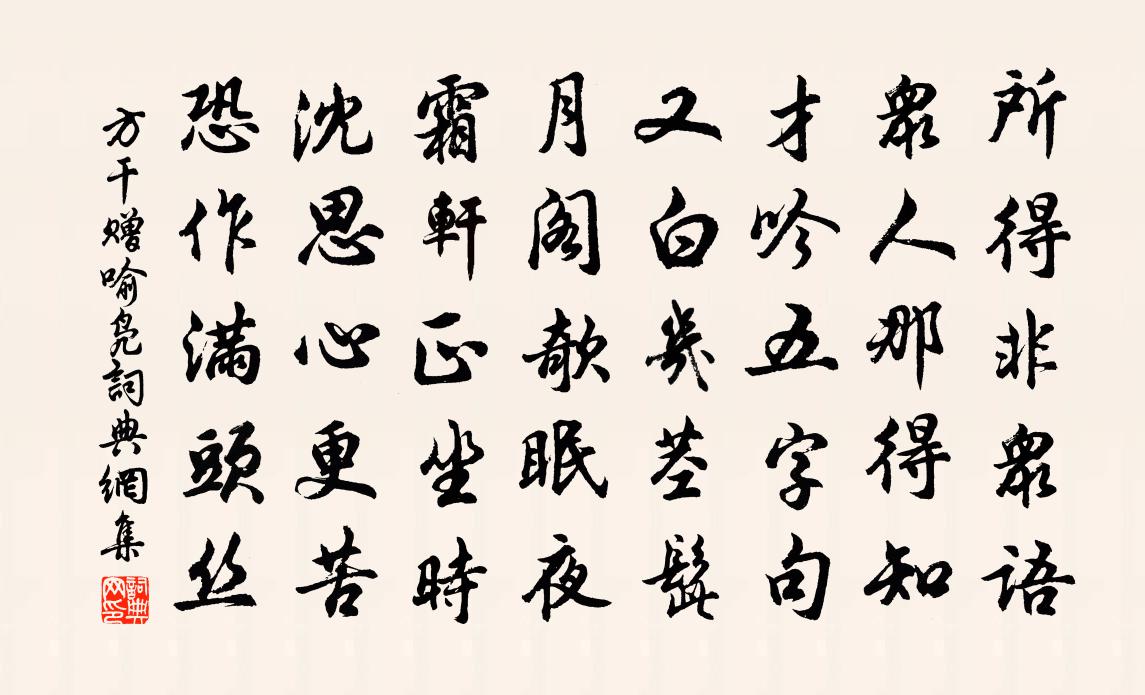 所得非眾語
眾人那得知
才吟五字句
又白幾莖髭
月閣欹眠夜
霜軒正坐時
沈思心更苦
恐作滿頭絲
方干贈喻凫詞典網集
詞典網印